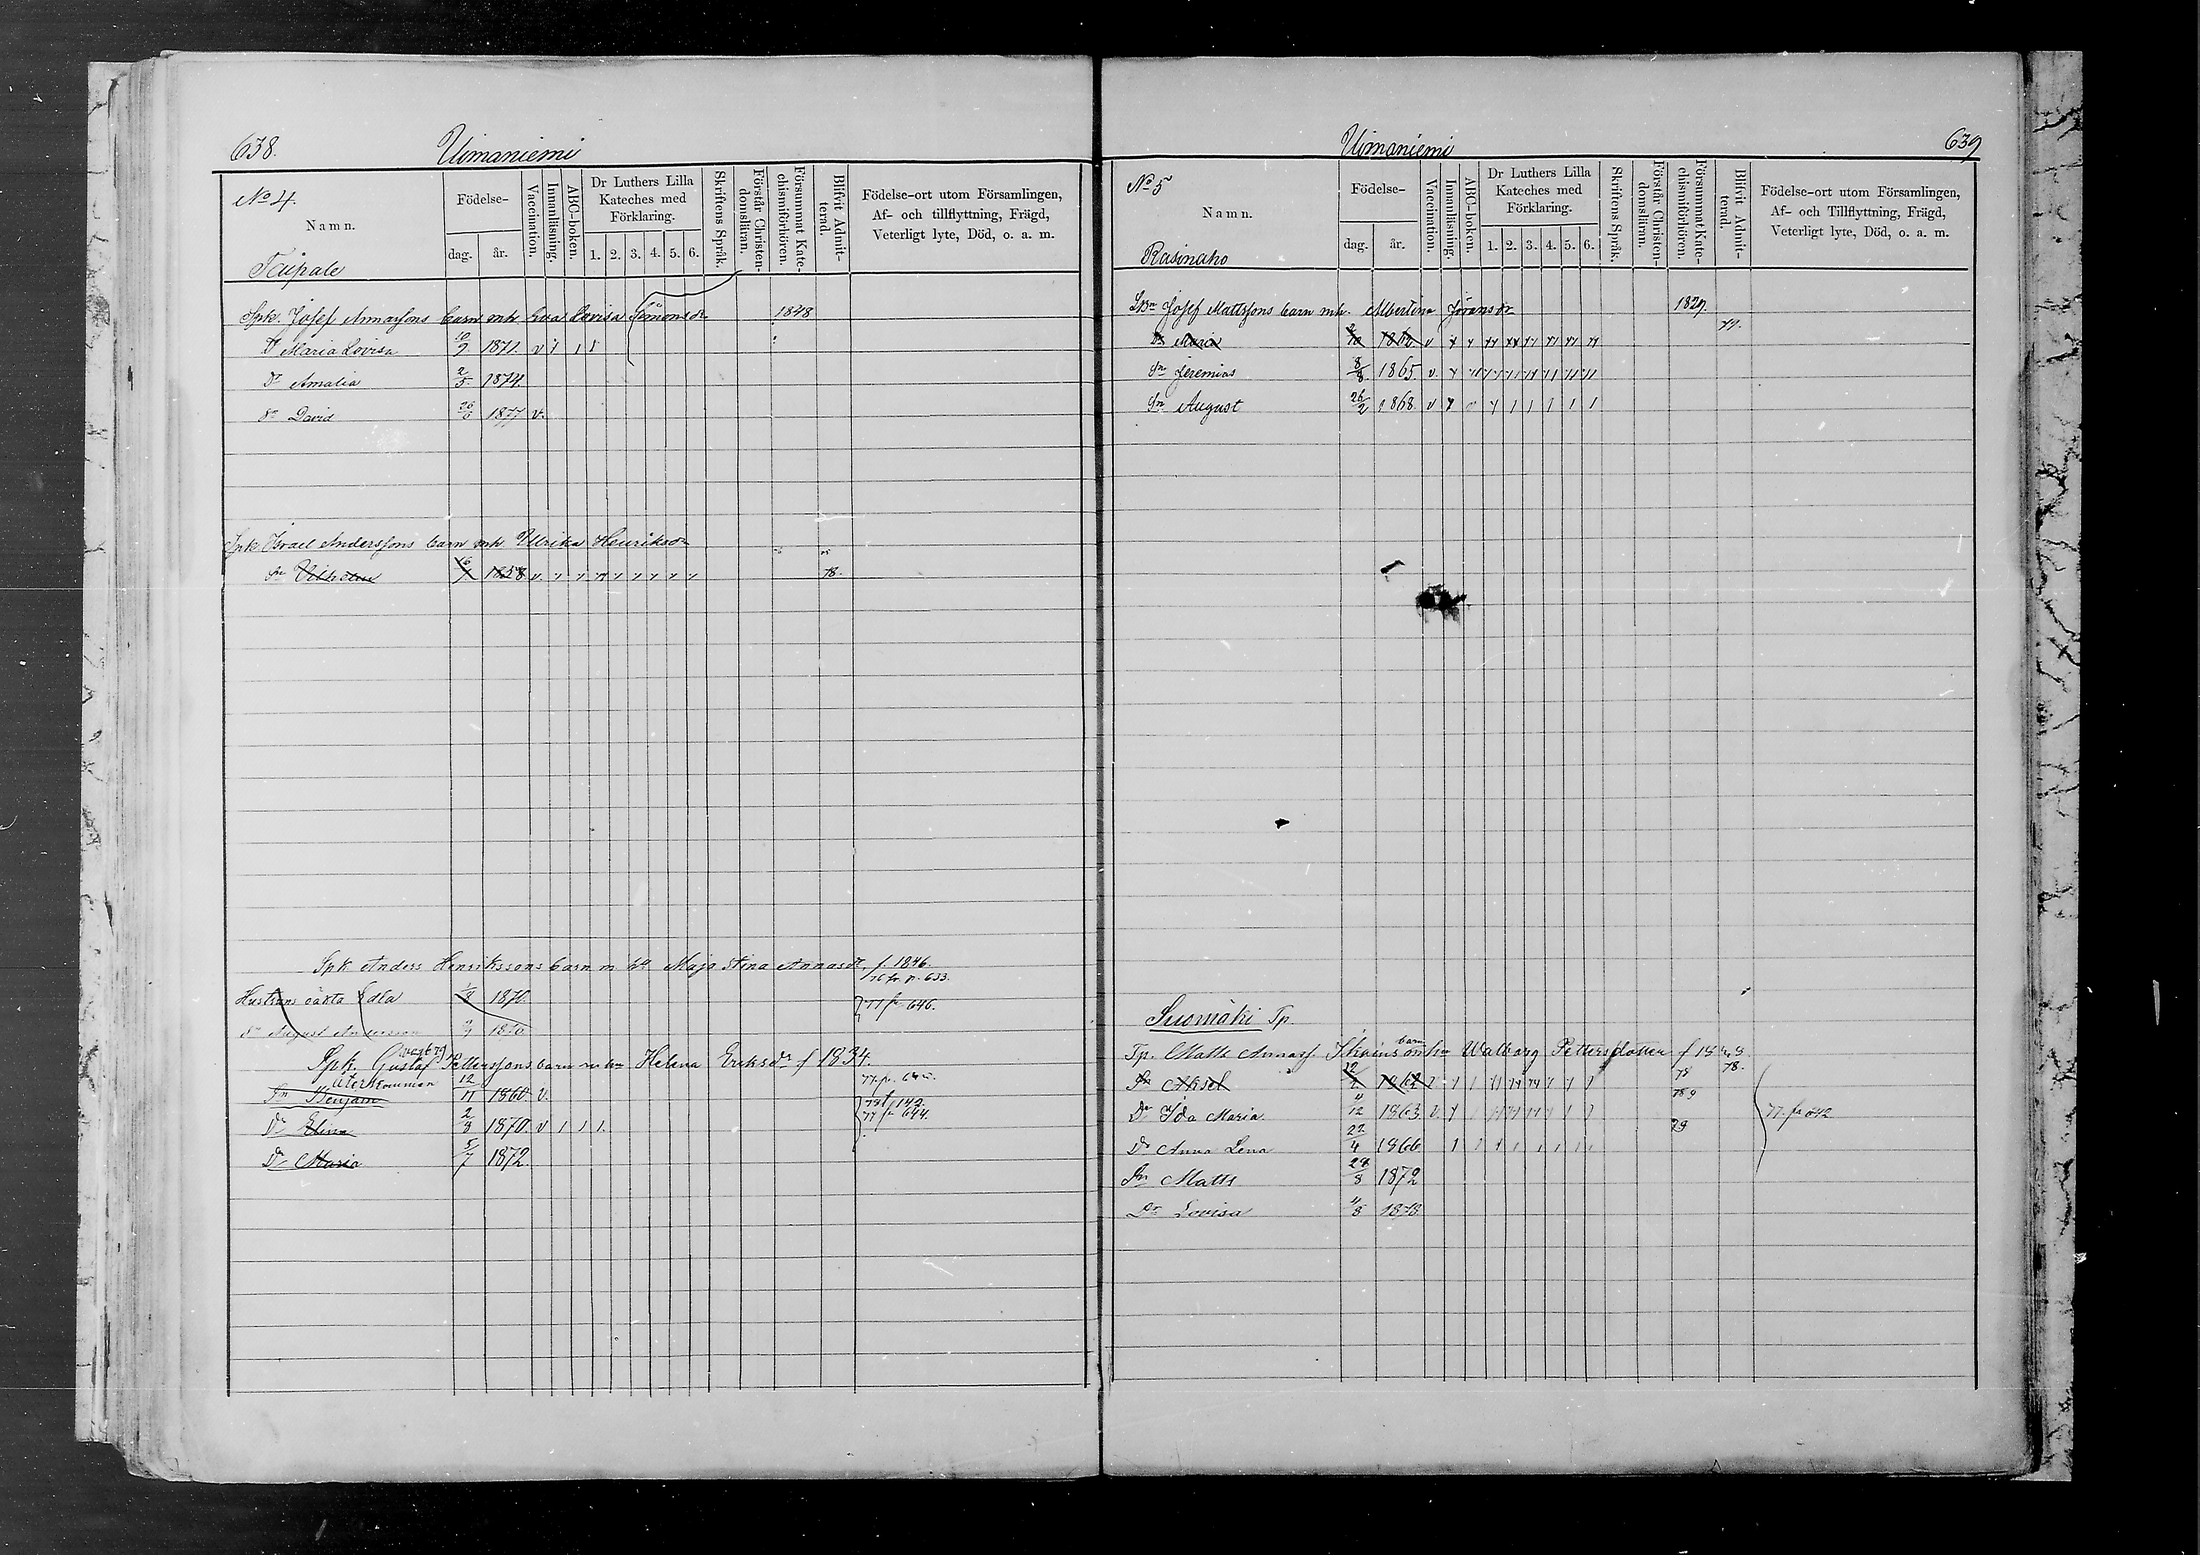 638.
Uimaniemi
No 4.
Namn.
Taipale
Födelse-
dag.
år.
Vaccination.
Innanläsning.
ABC-boken.
Dr Luthers Lilla
Kateches med
Förklaring.
1. 2. 3. 4. 5. 6.
Skriftens Språk.
Förstår Christen-
domsläran.
Försummat Kate-
chismiförhören.
Blifvit Admit-
terad.
Födelse-ort utom Församlingen,
Af- och tillflyttning, Frägd,
Veterligt lyte, Död, o. a. m.
Spk. Josef Annassons barn mh Eva Lovisa Simonsdr 1848
Dr Maria Lovisa 10/9 1871. v
Dr Amalia 2/5 1874.
Sn David 26/6 1877 v.
Spk Israel Anderssons barn mh Ulrika Henriksdr
Sn Vilhelm 16/1 1858 v. 78.
Spk Anders Henrikssons barn m h Maja Stina Annasdr, f. 1846.
76 fr p. 633.
Hustruns oäkta Edla 1870. 77 fr 646.
Sn August Andersson
Spk. Gustaf Pettersons barn m hn Helena Eriksdr f 1834.
Sn Benjam 12/11 1860 v.
Dr Elina 2/8 1870 v 1 1 1. 77 fr 644.
Dr Maria 5/7 1872
639
Uimaniemi
No 5
Namn.
Rasinaho
Födelse-
dag.
år.
Vaccination.
Innanläsning.
ABC-boken.
Dr Luthers Lilla
Kateches med
Förklaring.
1. 2. 3. 4. 5. 6.
Skriftens Språk.
Förstår Christen-
domsläran.
Försummat Kate-
chismiförhören.
Blifvit Admit-
terad.
Födelse-ort utom Församlingen,
Af- och Tillflyttning, Frägd,
Veterligt lyte, Död, o. a. m.
Josef Mattssons barn mh. Albertina Göransdr 1829.
Dr Maria 1862 v 79.
Sn Jeremias 8/8 1865. v.
Sn August 26/2 1868. v
Suomäki Tp.
Tp. Matts Annass. barn m hn Walborg Pettersdotter f
Sn Aksel 12/2 1862 78.
Dr Ida Maria 4/12 1863. v. 77. fr 642
Dr Anna Lena 22/4 1866 79
Sn Matts 28/8 1872
Dr Lovisa 4/8 1878